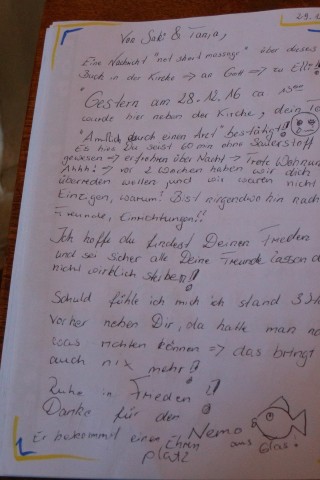 29.
Von Sabi & Tanja,
Eine Nachricht "not short message" über dieses
Buch in der Kirche => an Gott => an Elli!
"Gestern am 28.12.16 ca 15
wurde hier neben der Kirche, dein To
"Amtlich durch einen Arzt" bestätigt!
Es hies Du seist 60 min ohne Sauerstoff
gewesen => erfrohren über Nacht => Trotz Wohnun
Ahhh! => vor 2 Wochen haben wir dich
überreden wollen und wir waren nicht
Einzigen, warum? Bist nirgendwo hin nach
Freunde, Einrichtungen!!
Ich hoffe du findest Deinen Frieden
und sei sicher alle Deine Freunde lassen d
nicht wirklich sterben!
Schuld fühle ich mich ich stand 3
vorher neben Dir, da hätte man no
was richten können => das bringt
auch nix mehr!
Ruhe in Frieden!
Danke für den Nemo aus Glas!
Er bekommt einen Ehren
platz